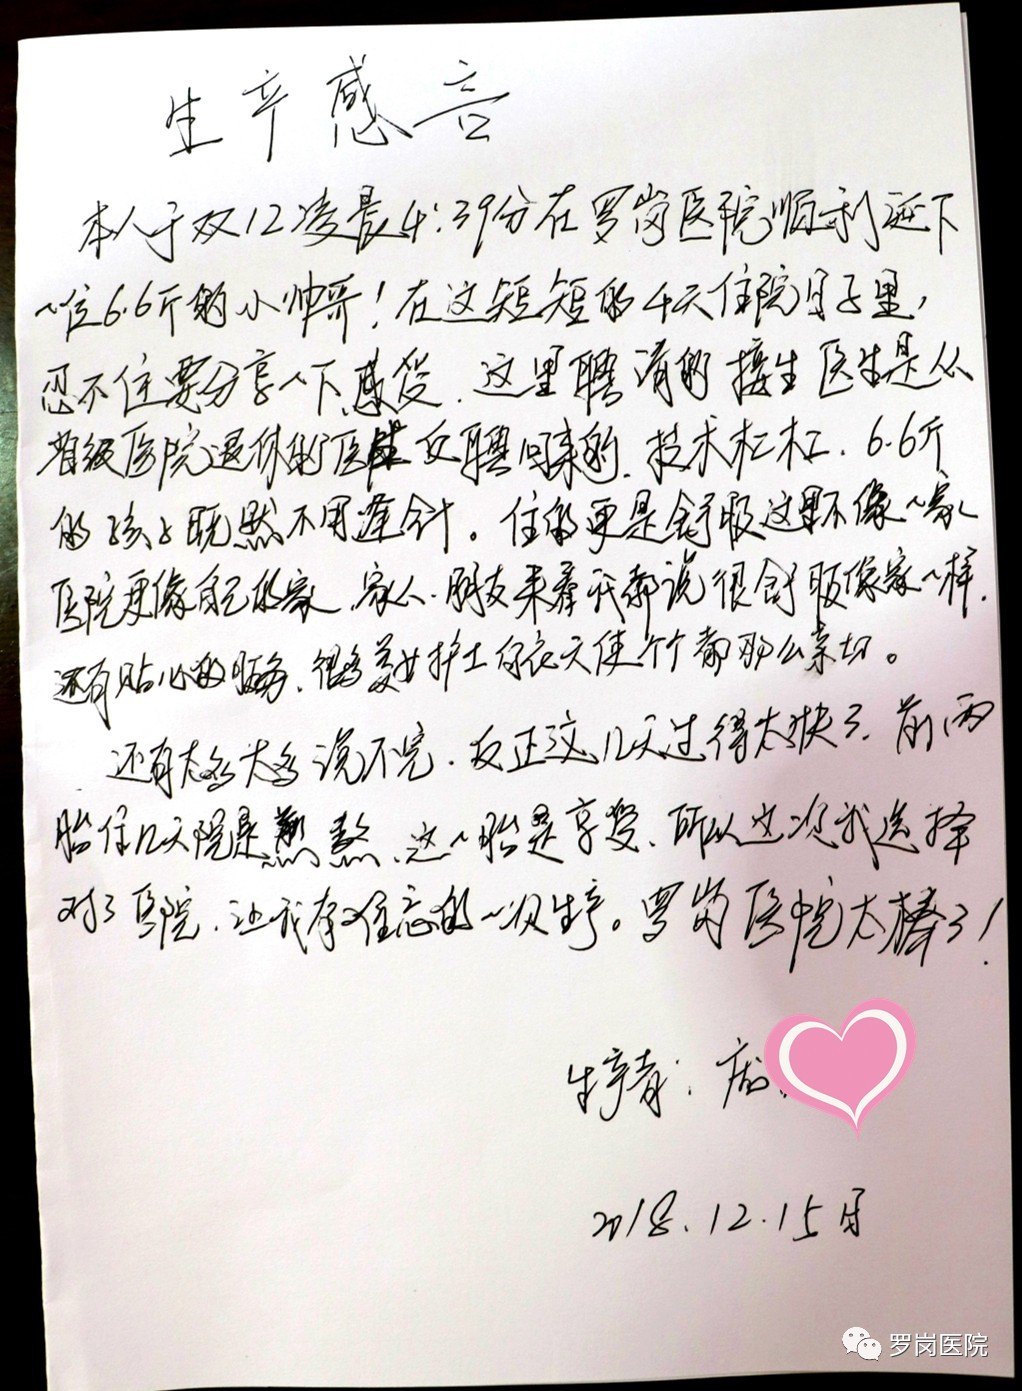 生产感言
本人于双12凌晨4:39分在罗岗医院顺利诞下
一位6.6斤的小帅哥！在这短短的4天住院月子里，
忍不住要分享一下感受．这里聘请的接生医生是从
省级医院退休的医生女聘回来的．技术杠杠．6.6斤
的孩子既然不用逢针。住的更是舒服这里不像一家
医院更像自己的家．家人．朋友来看我都说很舒服像家一样．
还有贴心的服务．很多美女护士白衣天使个个都那么亲切。
还有太多太多说不完．反正这几天过得太快了．前两
胎住几天院是煎熬．这一胎是享受．所以这次我选择
对了医院．让我有难忘的一次生产。罗岗医院太棒了！
生产者：
2018.12.15日
罗岗医院